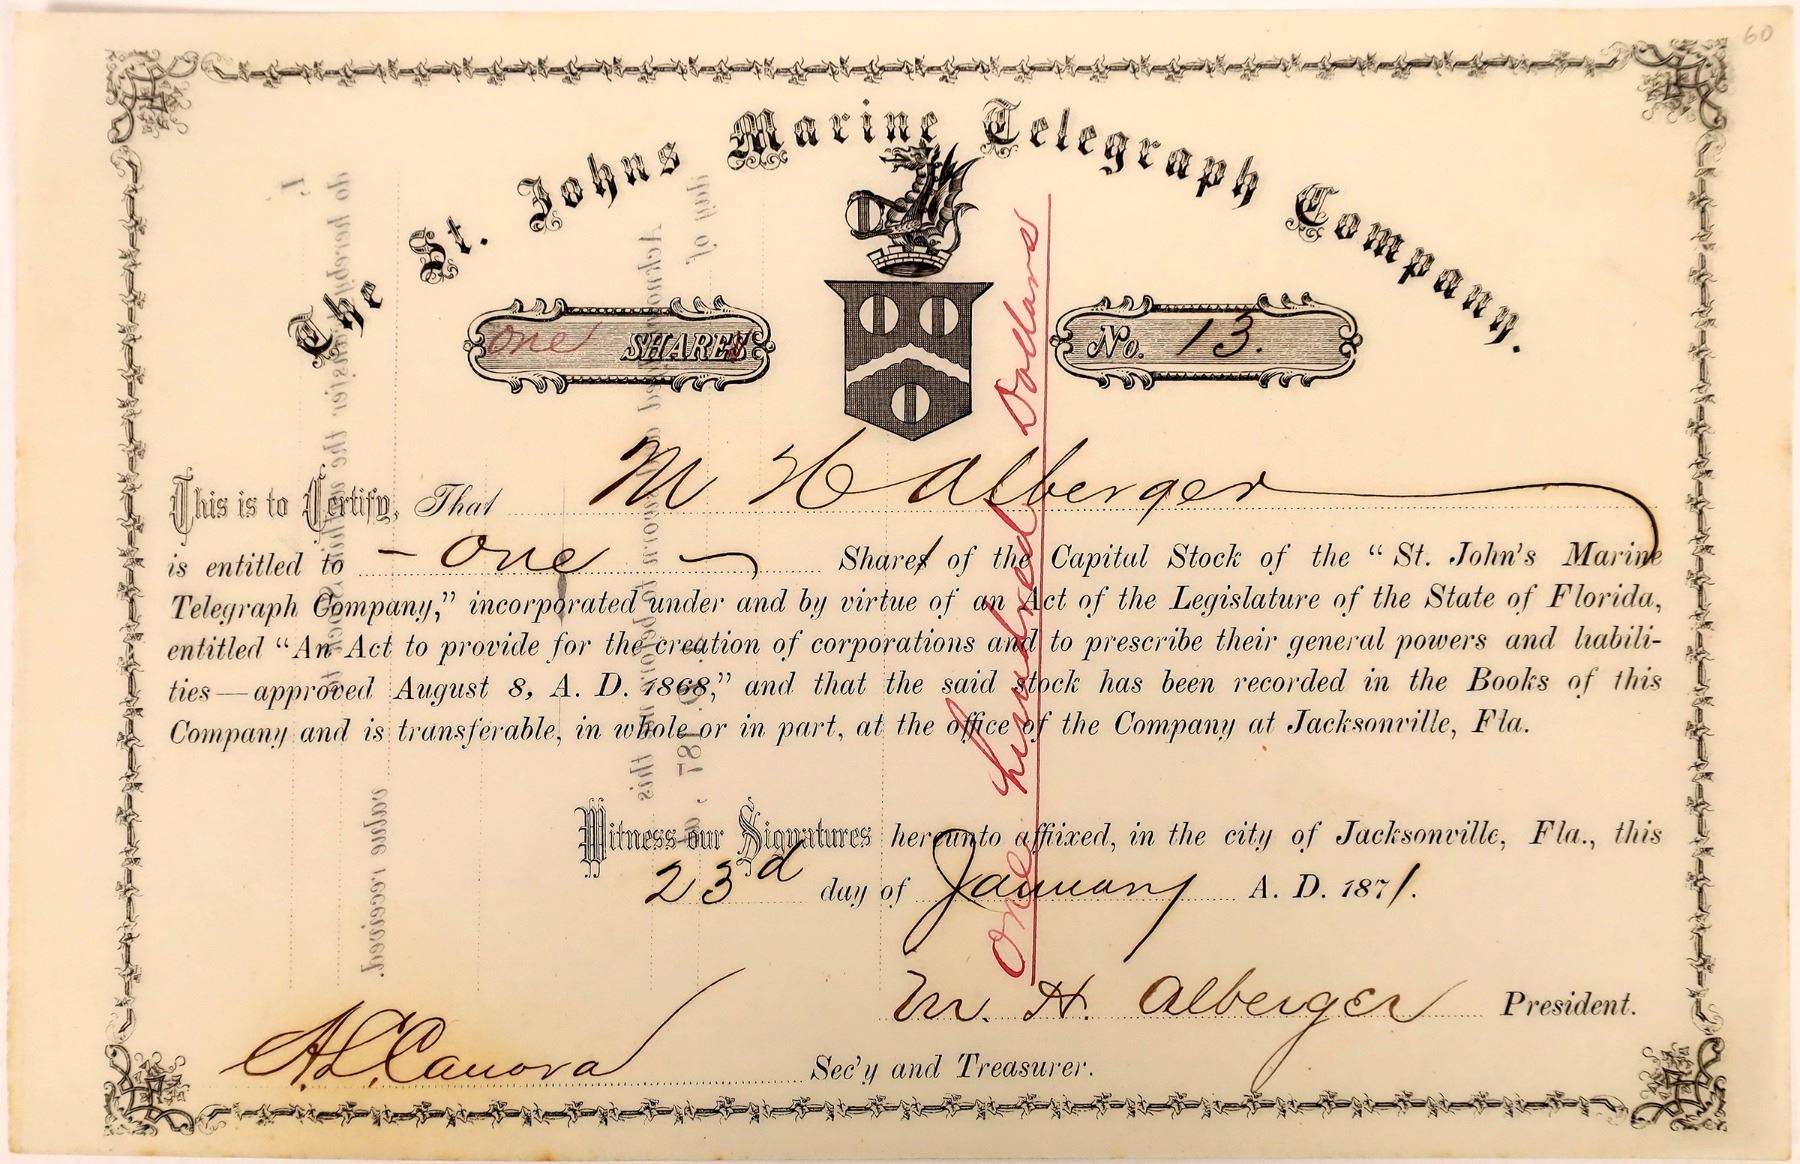 60
The St. Johns Marine Telegraph Company.
one SHARES
No. 13.
This is to Certify, That M H Alberger
is entitled to - One - Shares of the Capital Stock of the “St. John's Marine
Telegraph Company,” incorporated under and by virtue of an Act of the Legislature of the State of Florida,
entitled “An Act to provide for the creation of corporations and to prescribe their general powers and liabili-
ties—approved August 8, A. D. 1868,” and that the said stock has been recorded in the Books of this
Company and is transferable, in whole or in part, at the office of the Company at Jacksonville, Fla.
One hundred Dollars
Witness our Signatures hereunto affixed, in the city of Jacksonville, Fla., this
23d day of January A. D. 1871.
M. H. Alberger President.
A. L. Canova Sec'y and Treasurer.
I,
do hereby transfer the within stock
value received.
Acknowledged before this
day of 187